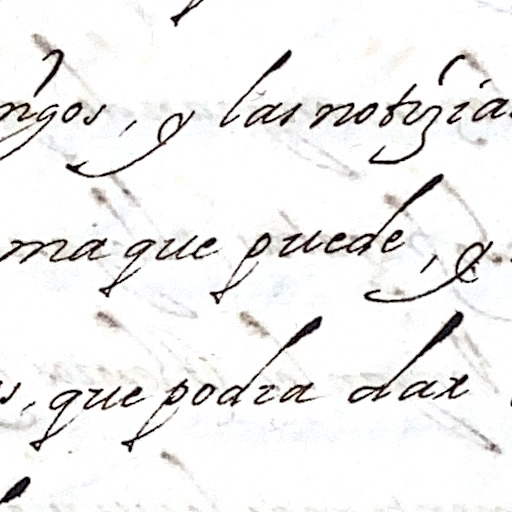 ngos, y las notizias
ma que puede, y
s, que podra dar